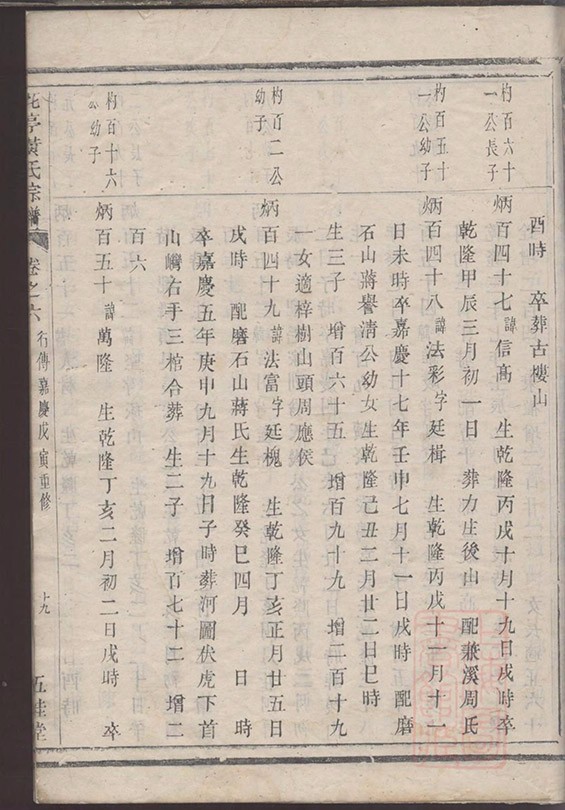 酉時 卒葬古樓山
杓百六十
一公長子
炳百四十七諱信髙 生乾隆丙戌十月十九日戌時卒
乾隆甲辰三月初一日 葬力生後山 配兼溪周氏
杓百五十
一公幼子
炳百四十八諱法彩字廷楫 生乾隆丙戌十一月十一
日未時卒嘉慶十七年壬申七月十一日戌時 配磨
石山蔣譽清公幼女生乾隆己丑二月廿二日巳時
生三子 增百六十五 增百九十九 增二百十九
一女適梓樹山頭周應侯
杓百二公
幼子
炳百四十九諱法富字廷槐 生乾隆丁亥正月廿五日
戌時 配磨石山蔣氏生乾隆癸巳四月 日 時
卒嘉慶五年庚申九月十九日子時葬河圖伏虎下首
山灣右手三棺合葬 生二子 增百七十二 增二
百六
杓百十六
公幼子
炳百五十諱萬隆 生乾隆丁亥二月初二日戌時 卒
亭黄氏宗譜 卷之六 行傳嘉慶戊寅重修 十九 五桂堂